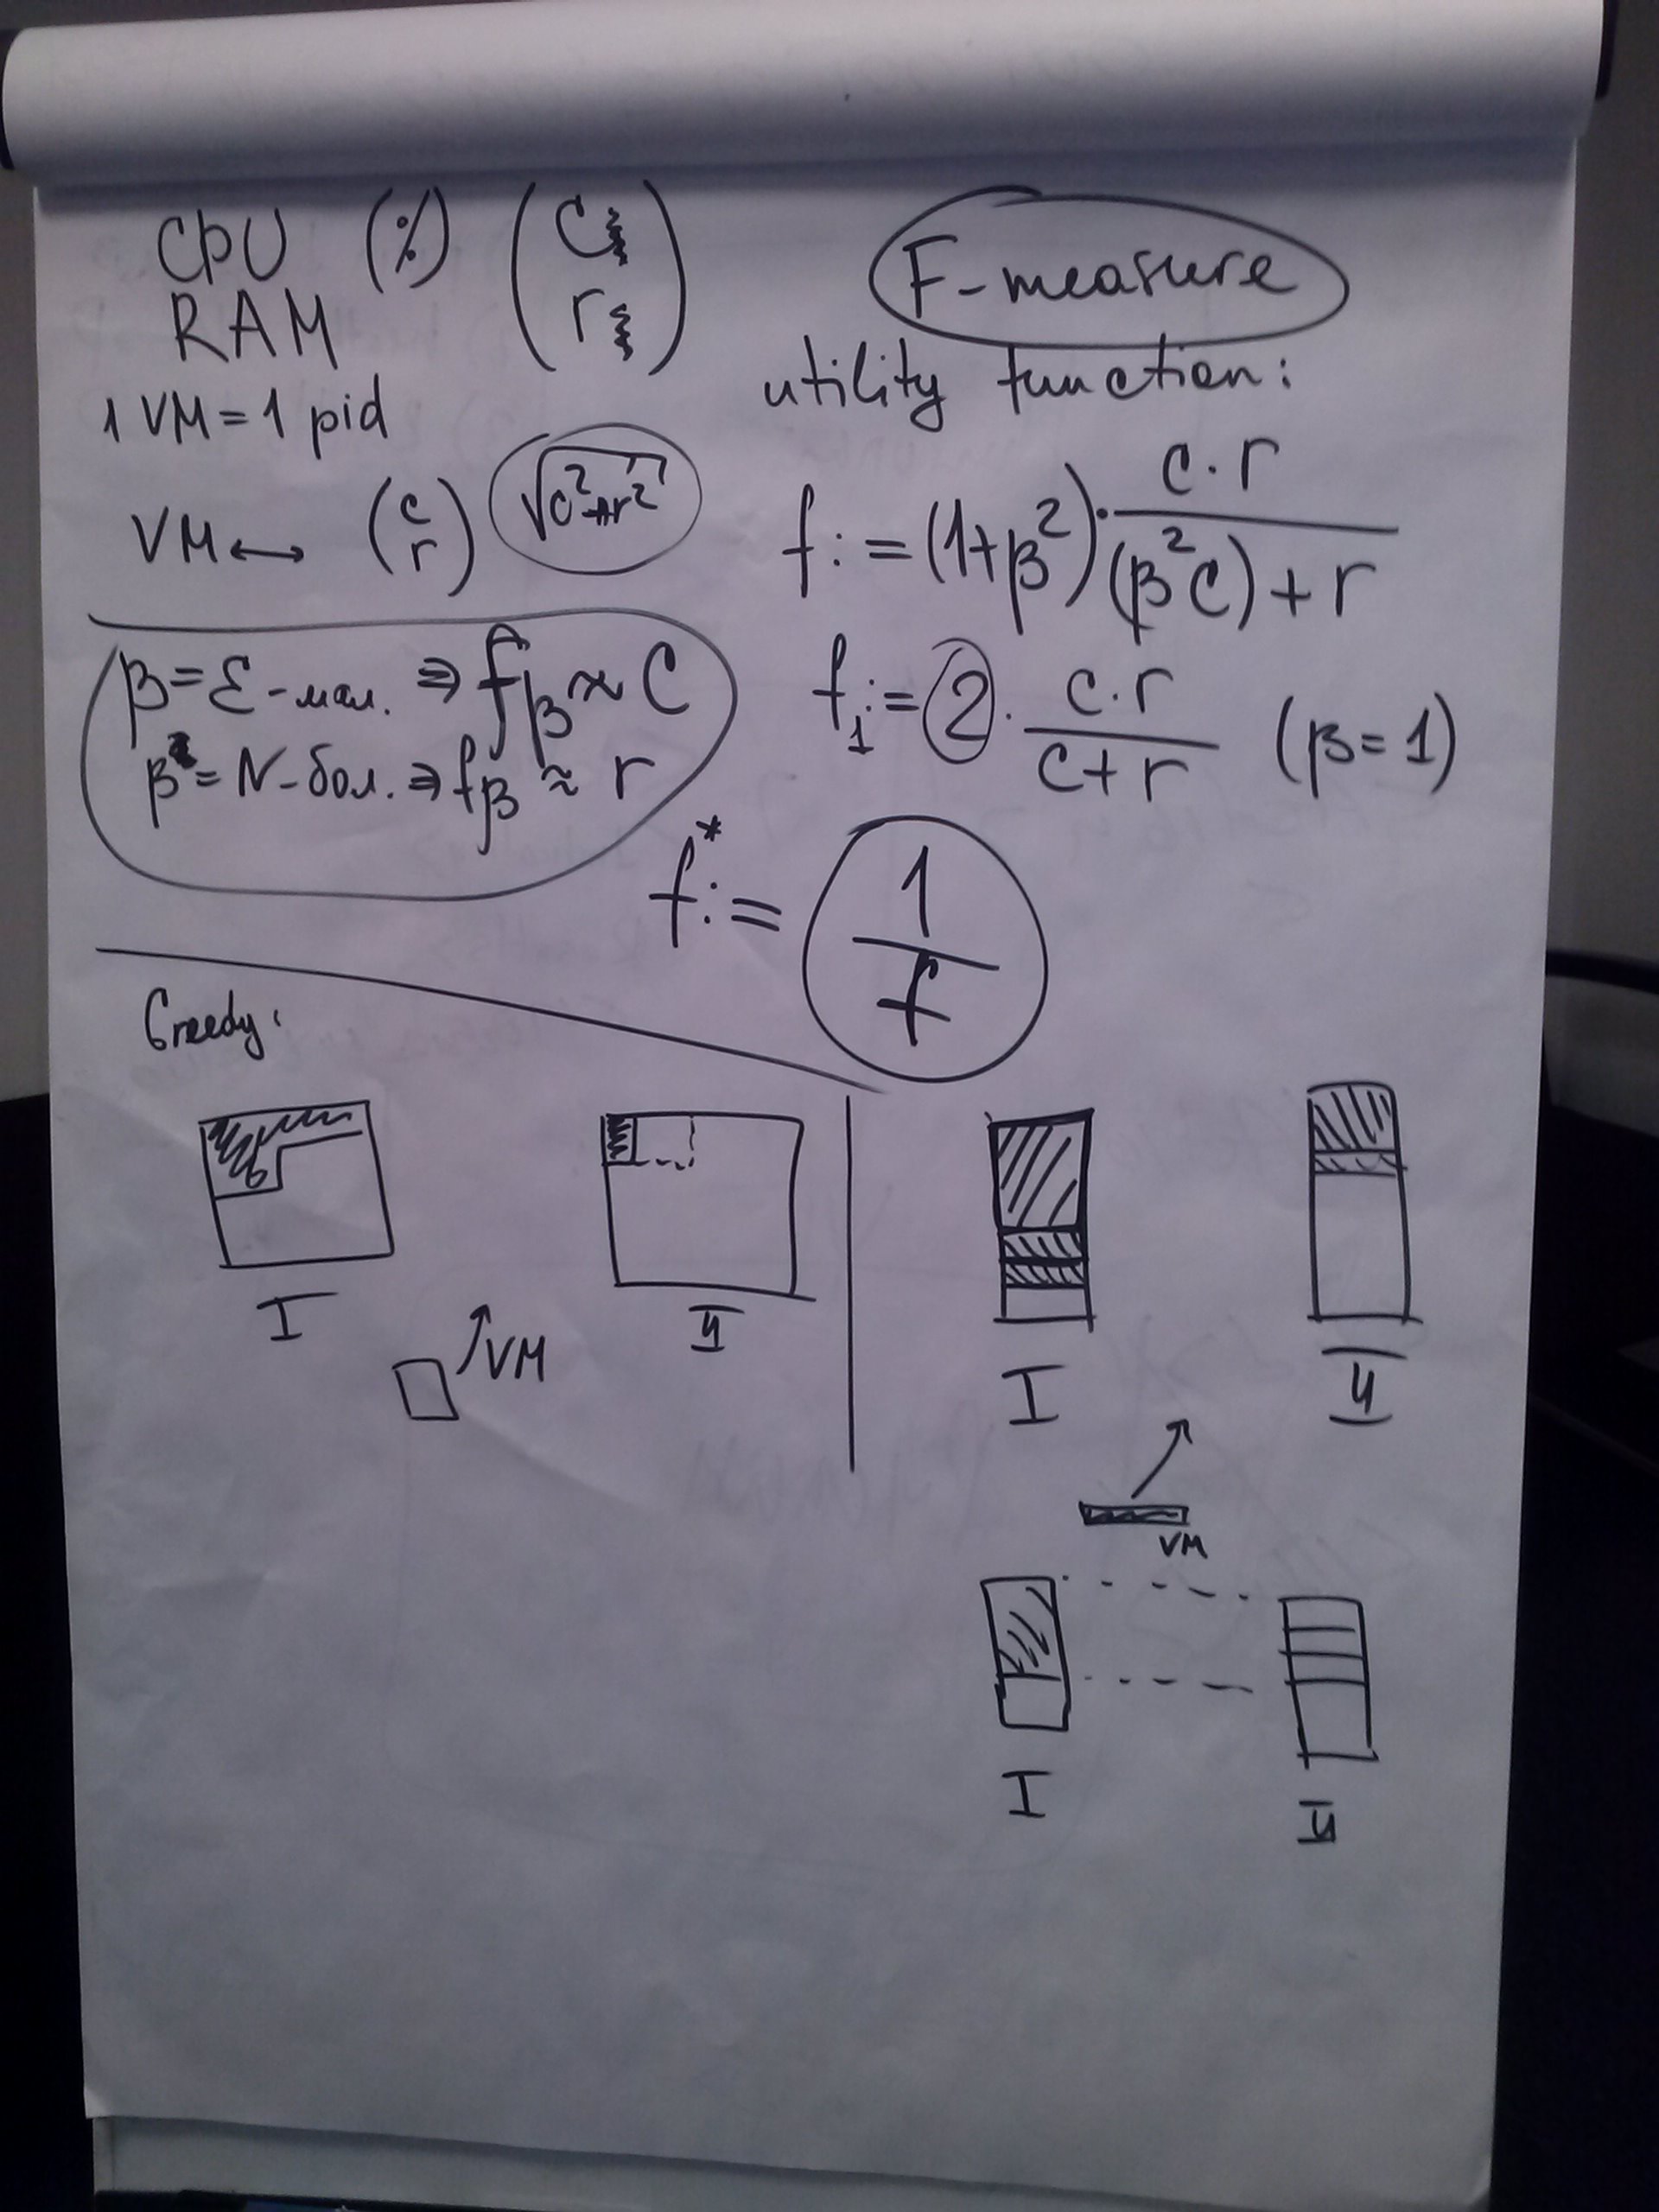 CPU (%) (c r)
RAM
1 VM = 1 pid
VM ↔ (c r) √c²+r²
β = ε - мал. ⇒ fβ ≈ c
β = N - бол. ⇒ fβ ≈ r
F-measure
utility function:
f := (1+β²) · c·r / (β²c) + r
f₁ := 2 · c·r / c+r (β = 1)
f* := 1 / f
Greedy:
I II
VM
I II
VM
I II